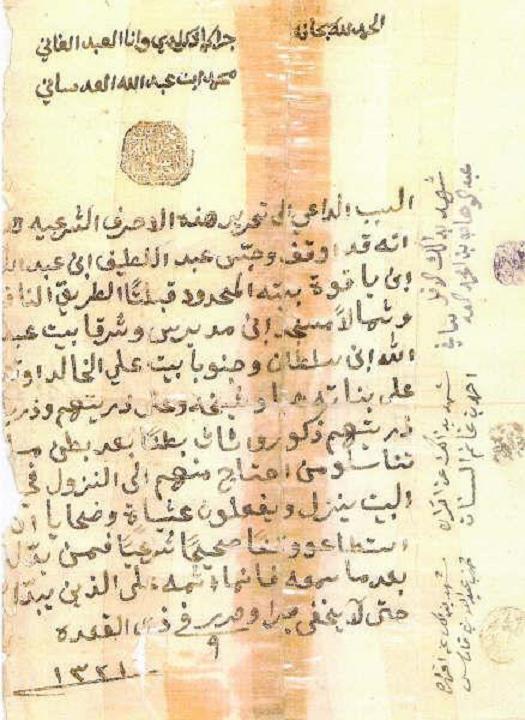 الحمد لله سبحانه
جرا ما ذكر لدي وانا العبد الفاني
محمد ابن عبد الله العدساني
السبب الداعي الى تحرير هذه الاحرف الشرعيه هو
انه قد اوقف وحبس عبد اللطيف ابن عبد الله
ابن ياقوة بيته المحدود قبلتًا الطريق النافذ
وشمالاً مسجد ابن مديرس وشرقا بيت عبد
الله ابن سلطان وجنوبا بيت علي الخالد اوقفه
على بناته وعلى ذريتهم وذرية
ذريتهم ذكور واناث بطنًا بعد بطن ما
تناسلو من احتاج منهم الى النزول في
البيت ينزل ويفعلون عشاة وضحايا ان
استطاعو وقفًا صحيحًا شرعيًا فمن بدّله
بعد ما سمعه فانما اثمه على الذين يبدلونه
حتى لا يخفى جرا وحرر في ذي القعدة
٩
١٣٢١
شهد بذلك الاقل
عبد الوهاب بن
شهد بذلك
احمد بن غانم
شهد بذلك